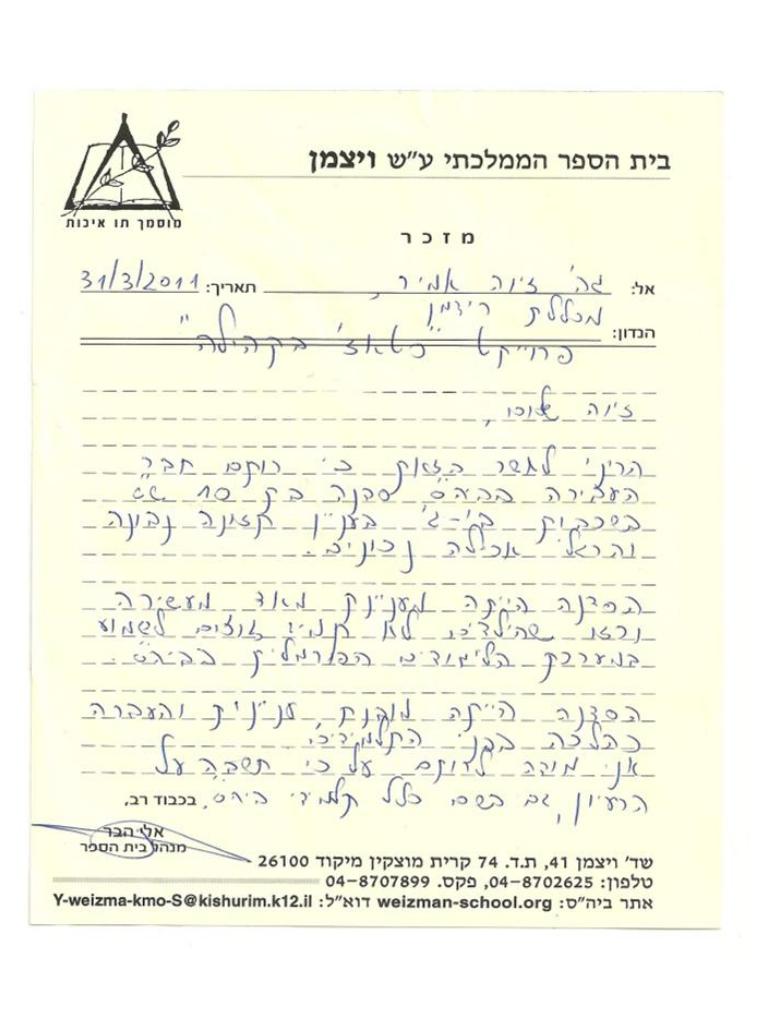 בית הספר הממלכתי ע"ש ויצמן
מוסמך תו איכות
מזכר
אל: גב' זיוה אמיר, תאריך: 31/3/2011
מכללת רידמן
הנדון: פרוייקט "סטאז' בקהילה"
זיוה שלום,
הריני לאשר בזאת כי רותם חבר
העבירה בביה"ס סדנה בת 10 ש"ש
בשכבות ב'-ג' בעניין תזונה נבונה
והרגלי אכילה נכונים.
הסדנה הייתה מעניינת מאוד מעשירה
שהילדים לא תמיד זוכים לשמוע
במערכת הלימודים הפורמלית בביה"ס.
הסדנה הייתה מובנת, עניינית והעברה
כהלכה בפני התלמידים.
אני מודה לרותם על כי חשבה על
הרעיון, גם בשם כלל תלמידי ביה"ס, בכבוד רב,
אלי הבר
מנהל בית הספר
שד' ויצמן 41, ת.ד. 74 קרית מוצקין מיקוד 26100
טלפון: 04-8702625, פקס. 04-8707899
אתר ביה"ס: weizman-school.org דוא"ל: Y-weizma-kmo-S@kishurim.k12.il